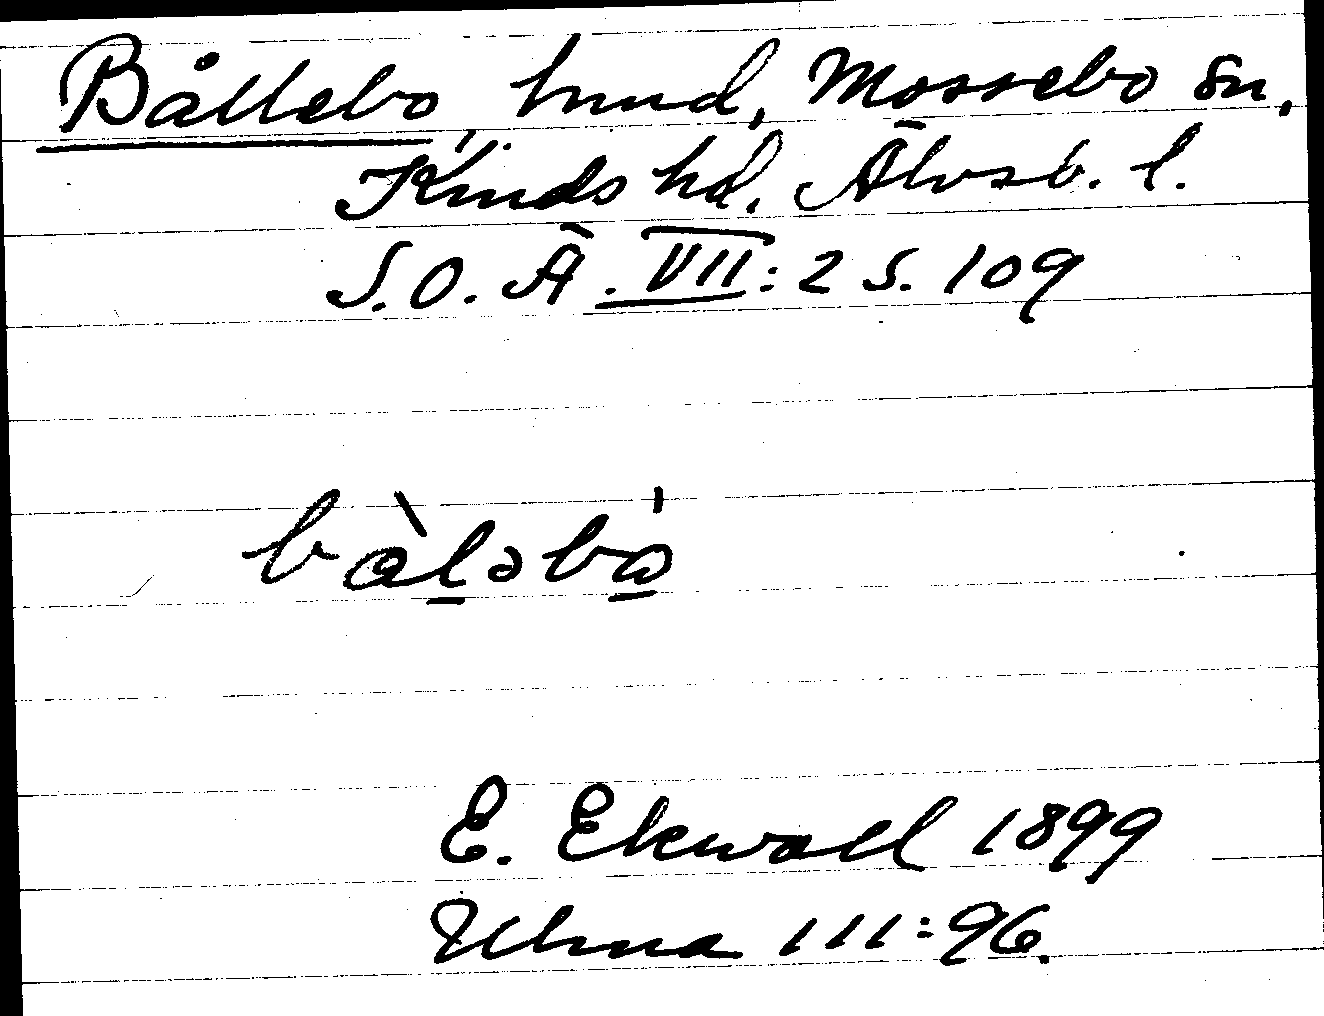 Bållebo hmd, Mossebo sn,
Kinds hd. Älvsb. l.
S. O. Ä. VII: 2 S. 109
bàləbò
E. Ekwall 1899
Ulma 111:96.